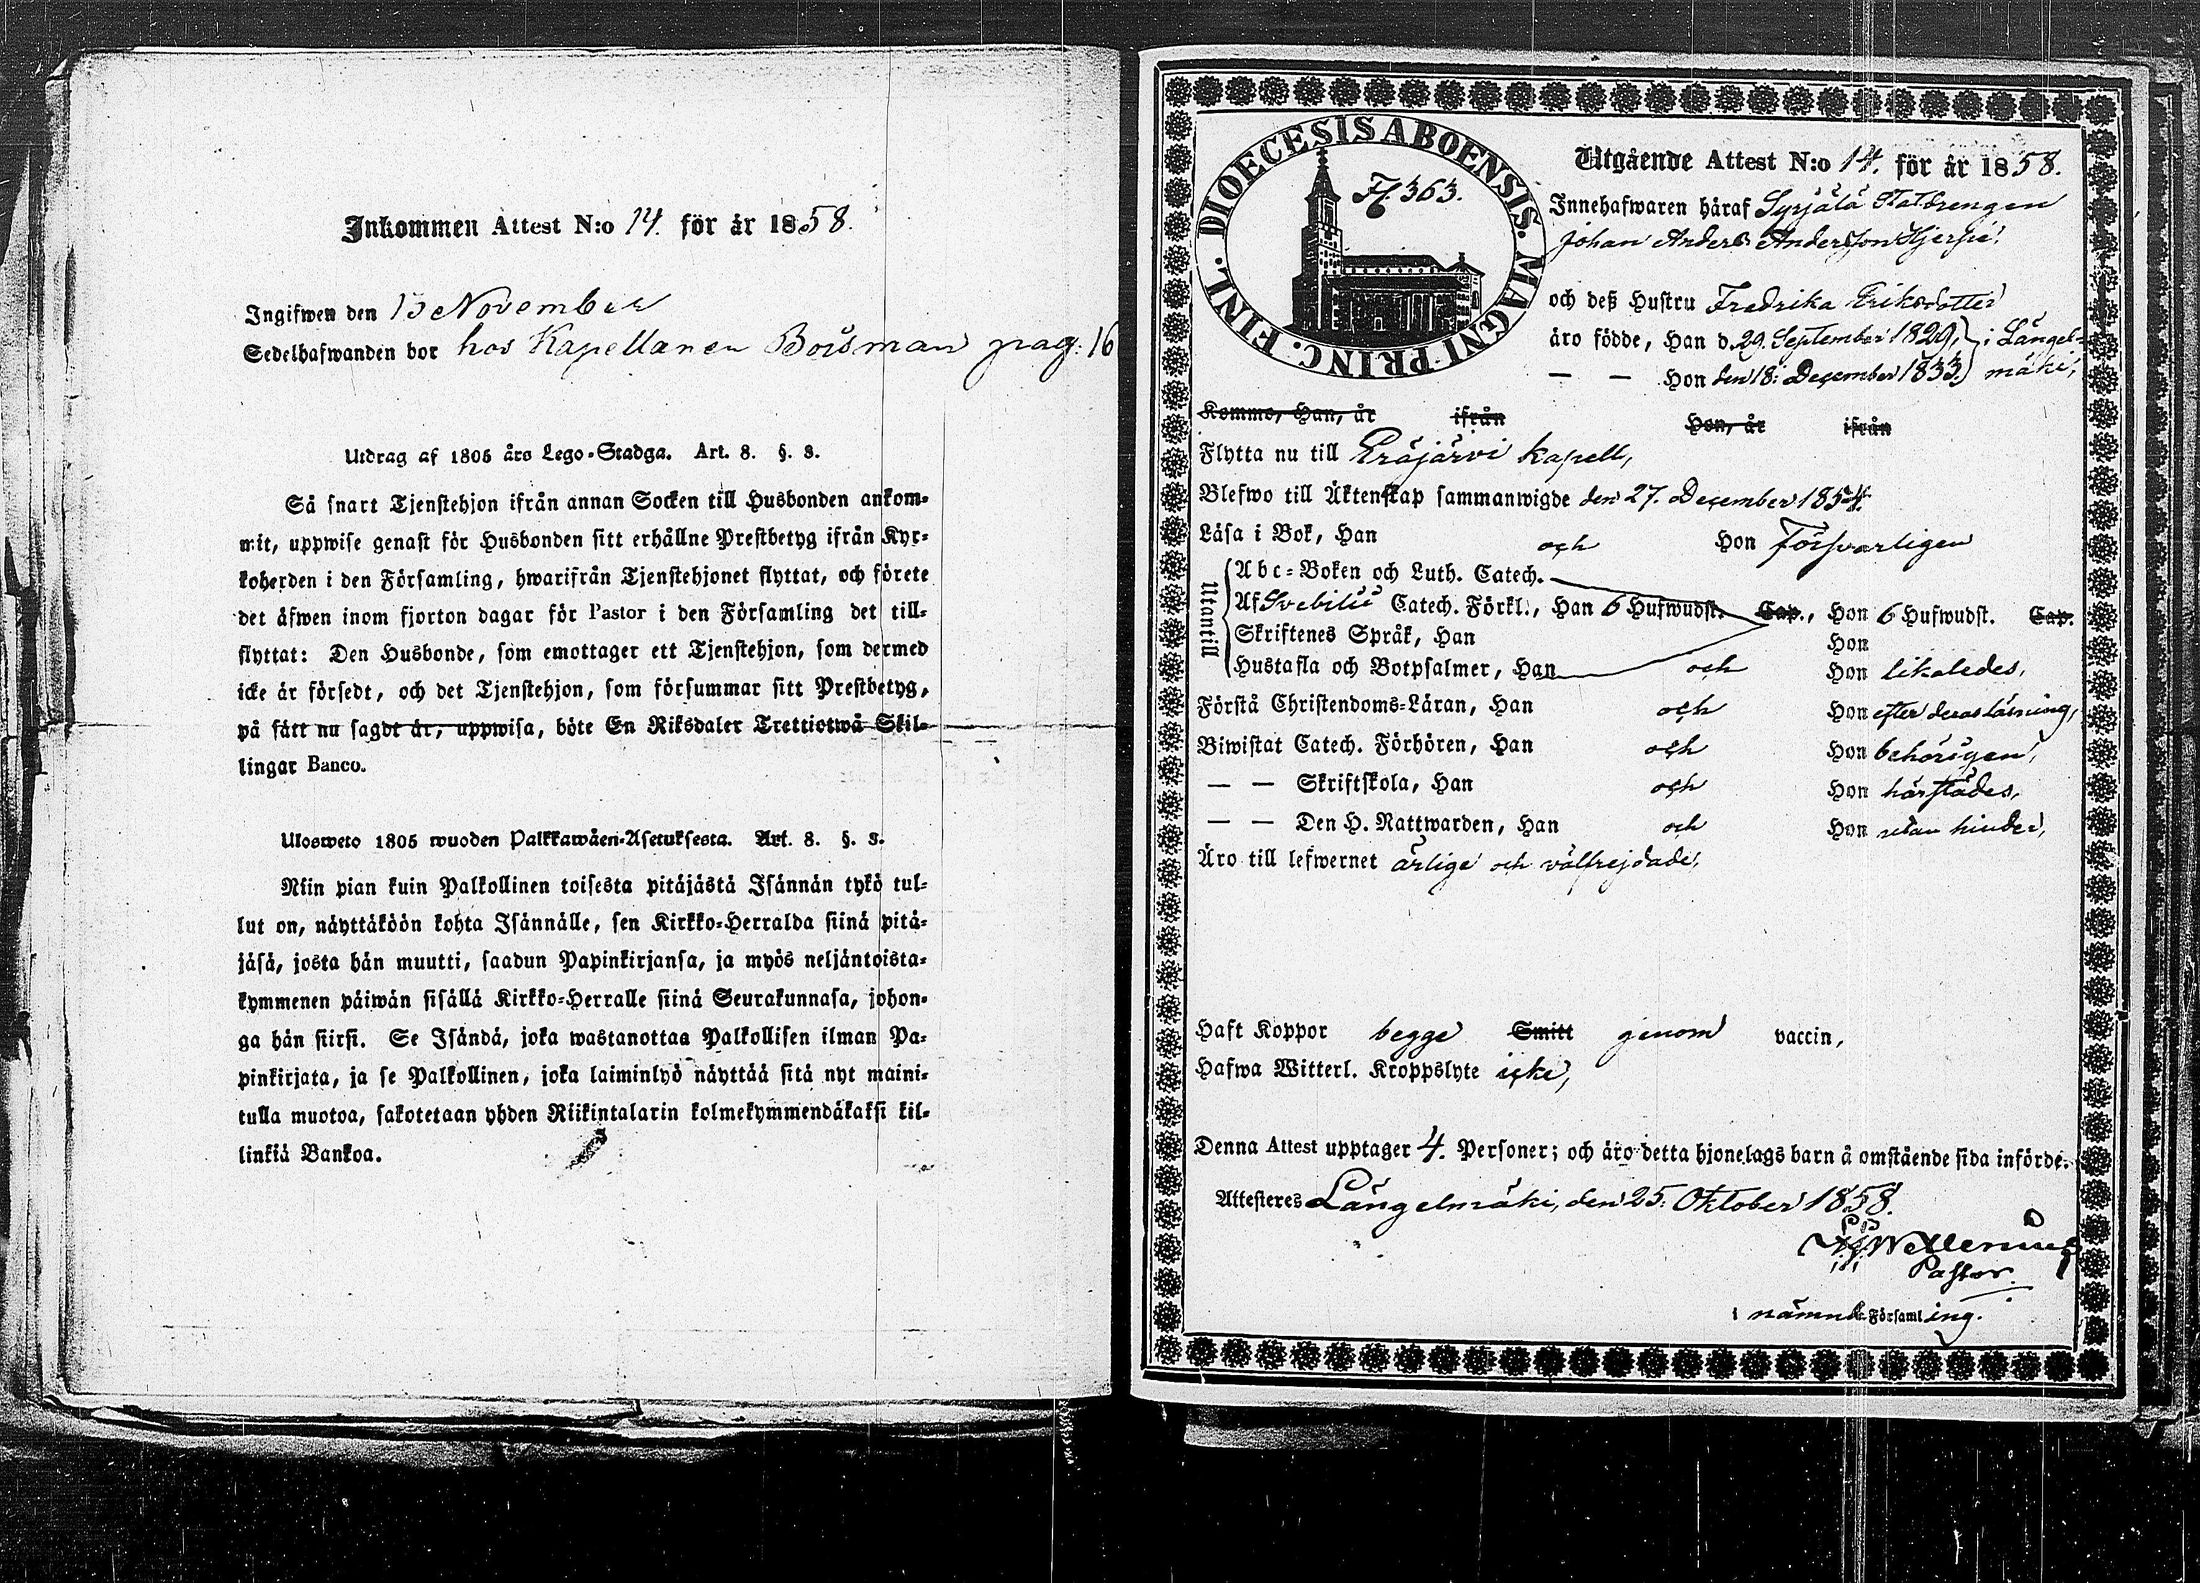 Inkommen Attest N:o 14. för år 1858.
Ingifwen den 13 November
Sedelhafwanden bor hos Kapellanen Boisman pag: 16
Utdrag af 1805 års Lego-Stadga. Art. 8. §. 8.
Så snart Tjenstehjon ifrån annan Socken till Husbonden ankom-
mit, uppwise genast för Husbonden sitt erhållne Prestbetyg ifrån Kyr-
koherden i den Församling, hwarifrån Tjenstehjonet flyttat, och förete
det äfwen inom fjorton dagar för Pastor i den Församling det till-
flyttat: Den Husbonde, som emottager ett Tjenstehjon, som dermed
icke är försedt, och det Tjenstehjon, som försummar sitt Prestbetyg,
på sätt nu sagdt är, uppwisa, böte En Riksdaler Trettiotwå Skil-
lingar Banco.
Ulosweto 1805 wuoden Palkkawäen-Asetuksesta. Art. 8. §. 8.
Niin pian kuin Palkollinen toisesta pitäjästä Isännän tykö tul-
lut on, näyttäköön kohta Isännälle, sen Kirkko-Herralda siinä pitä-
jäsä, josta hän muutti, saadun Papinkirjansa, ja myös neljäntoista-
kymmenen päiwän sisällä Kirkko-Herralle siinä Seurakunnasa, johon-
ga hän siirsi. Se Isändä, joka wastanottaa Palkollisen ilman Pa-
pinkirjata, ja se Palkollinen, joka laiminlyö näyttää sitä nyt maini-
tulla muotoa, sakotetaan yhden Riikintalarin kolmekymmendäkaksi kil-
linkiä Bankoa.
DIOECESIS ABOENSIS. MAGNI PRINC. FINL.
Fl. 363.
Utgående Attest N:o 14. för år 1858.
Innehafwaren häraf Syrjälä Statdrengen
Johan Anders Andersson Hjerpe.
och deß Hustru Fredrika Eriksdotter
äro födde, Han d. 29. September 1829, i Längel-
— — Hon den 18: December 1833. mäki,
Kommo, Han, år ifrån Hon, år ifrån
Flytta nu till Eräjärvi kapell,
Blefwo till Äktenskap sammanwigde den 27. December 1854.
Läsa i Bok, Han och Hon försvarligen
Utantill
Abc-Boken och Luth. Catech.
Af Svebilii Catech. Förkl., Han 6 Hufwudst. Cap., Hon 6 Hufwudst. Cap.
Skriftenes Språk, Han Hon
Hustafla och Botpsalmer, Han och Hon likaledes,
Förstå Christendoms-Läran, Han och Hon efter deras läsning,
Biwistat Catech. Förhören, Han och Hon behörigen,
— — Skriftskola, Han och Hon härstädes,
— — Den H. Nattwarden, Han och Hon utan hinder,
Äro till lefwernet ärlige och välfrejdade,
Haft Koppor begge Smitt genom vaccin,
Hafwa Witterl. Kroppslyte icke,
Denna Attest upptager 4. Personer; och äro detta hjonelags barn å omstående sida införde.
Attesteres Längelmäki, den 25: Oktober 1858.
Pastor.
i nämnde Församling.